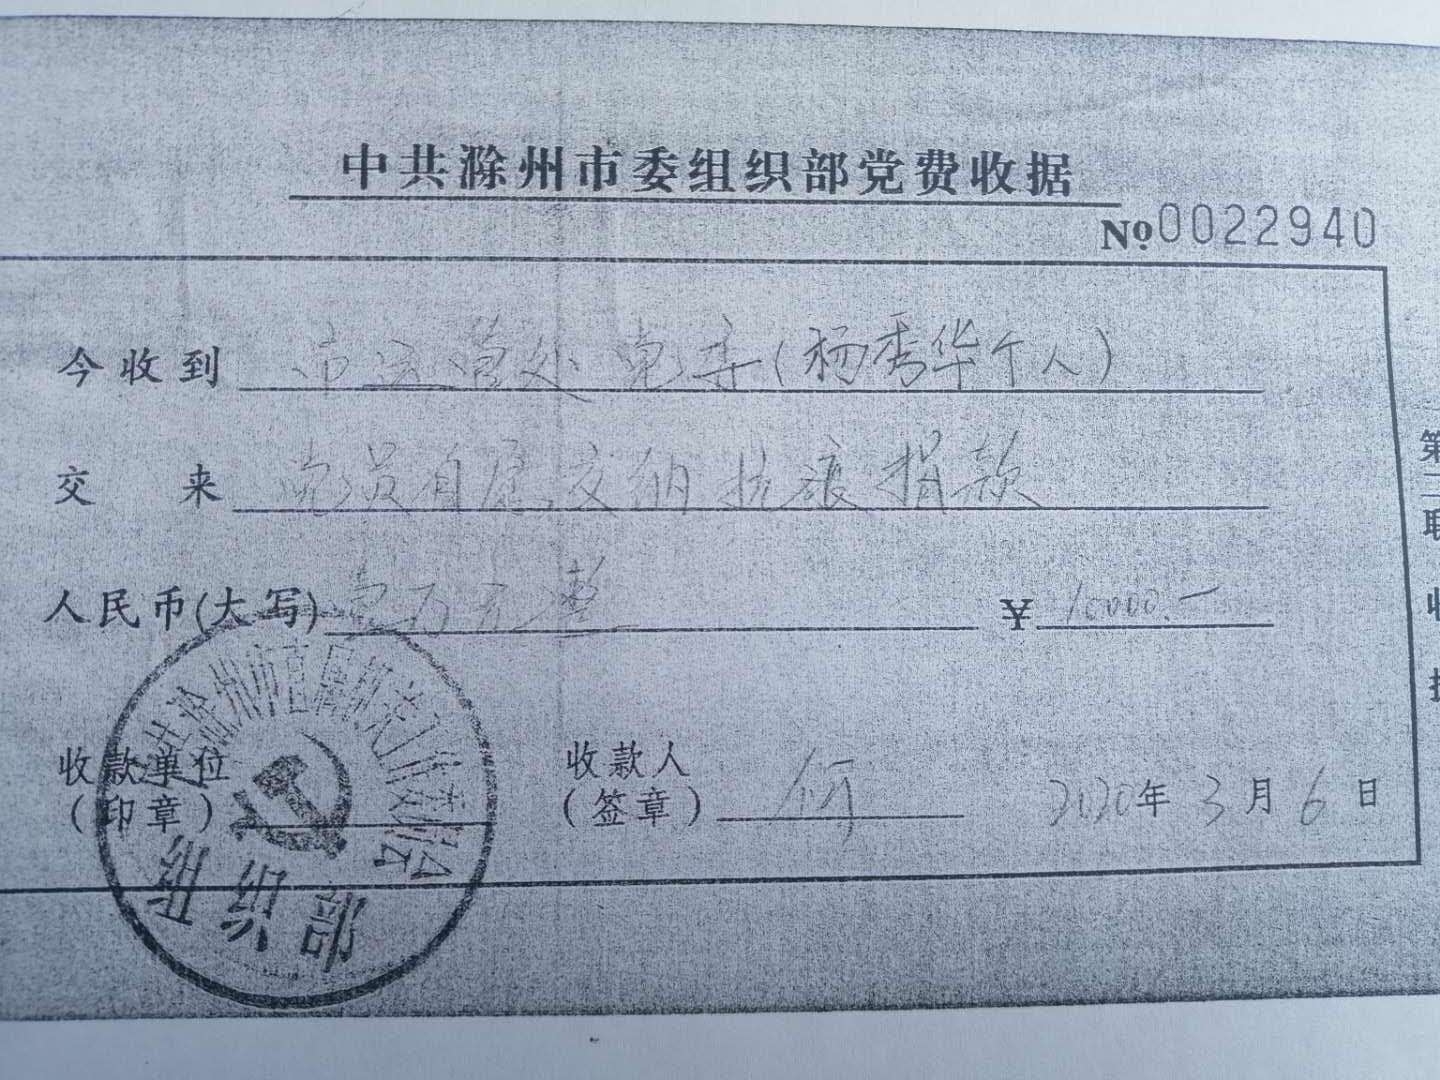 中共滁州市委组织部党费收据
№0022940
今收到 市运管处党委(杨秀华个人)
交 来 党员自愿交纳抗疫捐款
人民币(大写) 壹万元整 ¥ 10000.—
收款单位
(印章)
收款人
(签章) 何
2020年 3月 6日
第二联
收
组织部